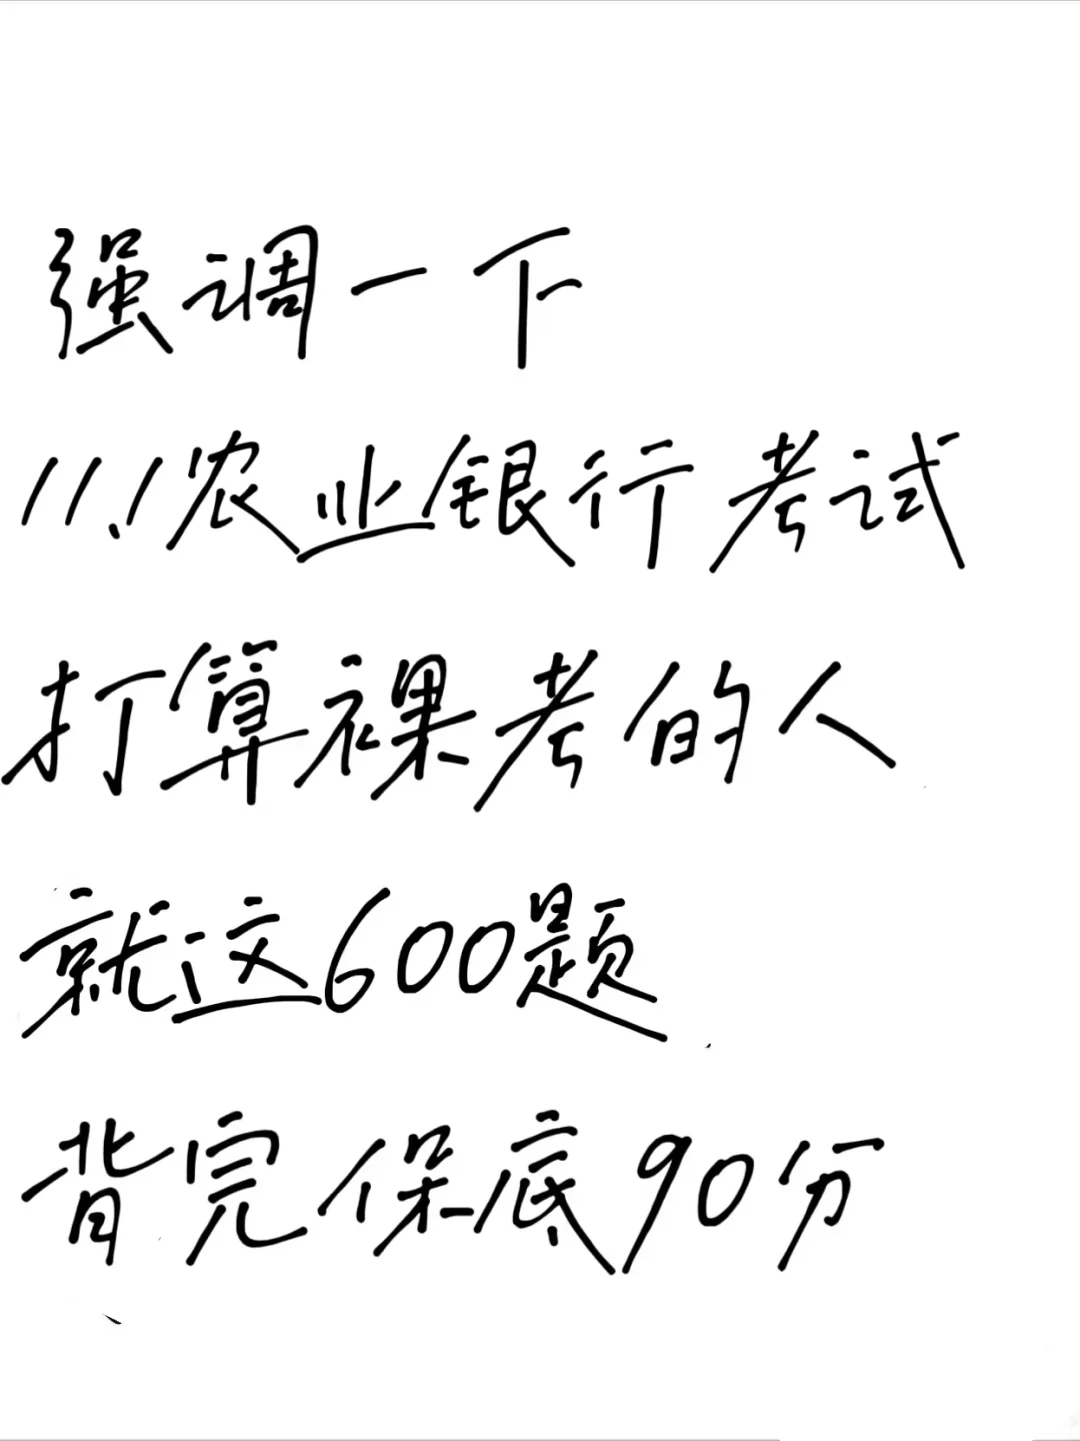 强调一下
11.1农业银行考试
打算裸考的人
就这600题
背完保底90分